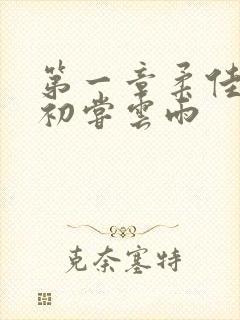 第一章柔佳
初尝雲雨
克奈塞特